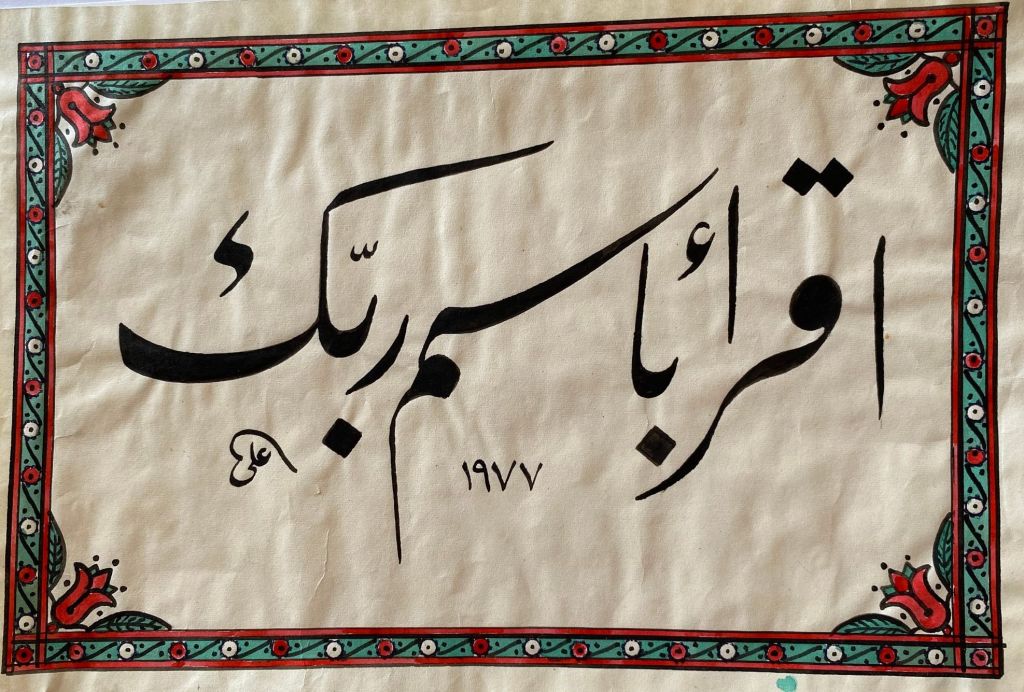 اقرأ باسم ربّك
١٩٧٧
علي